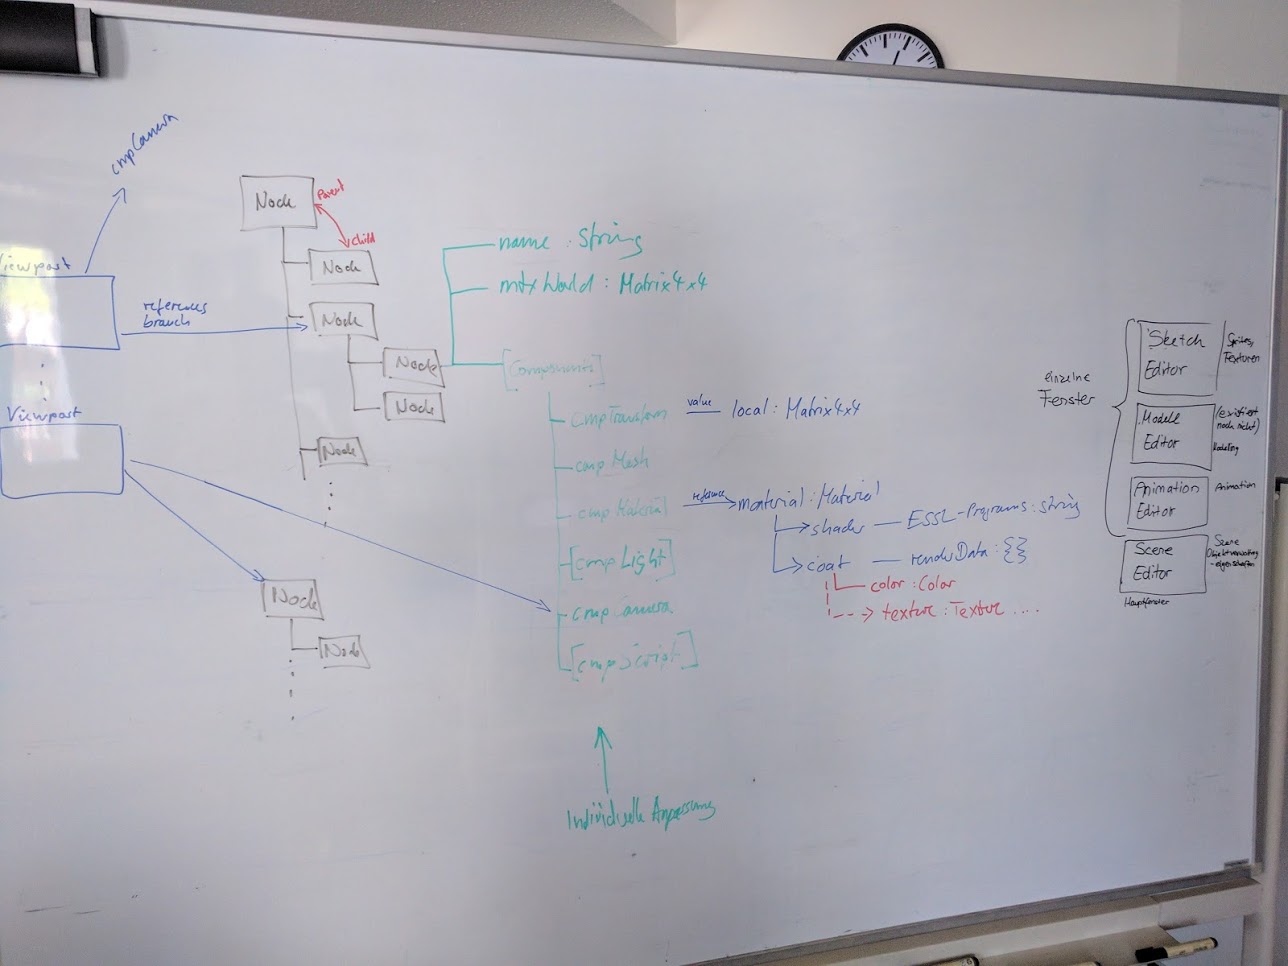 cmpCamera
Viewport
references
branch
Viewport
Node
Parent
Child
Node
Node
Node
Node
Node
Node
Node
name : String
mtxWorld : Matrix4x4
[Components]
cmpTransform
value
local : Matrix4x4
cmp Mesh
cmp Material
reference
material : Material
shader — ESSL-Programs : string
coat — renderData : {}
color : Color
texture : Texture ....
[cmp Light]
cmp Camera
[cmp Script]
Individuelle Anpassung
einzelne
Fenster
Sketch
Editor
Sprites,
Texturen
Modell
Editor
(existiert
noch nicht)
Modelling
Animation
Editor
Animation
Scene
Editor
Scene
Objektverwaltung
-eigenschaften
Hauptfenster